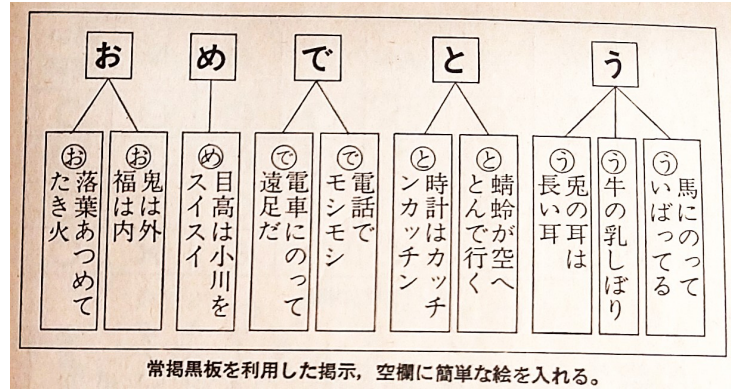 おめでとう
お 落葉あつめて
たき火
お 鬼は外
福は内
め 目高は小川を
スイスイ
で 電車にのって
遠足だ
で 電話で
モシモシ
と 時計はカッチ
ンカッチン
と 蜻蛉が空へ
とんで行く
う 兎の耳は
長い耳
う 牛の乳しぼり
う 馬にのって
いばってる
常掲黒板を利用した掲示，空欄に簡単な絵を入れる。